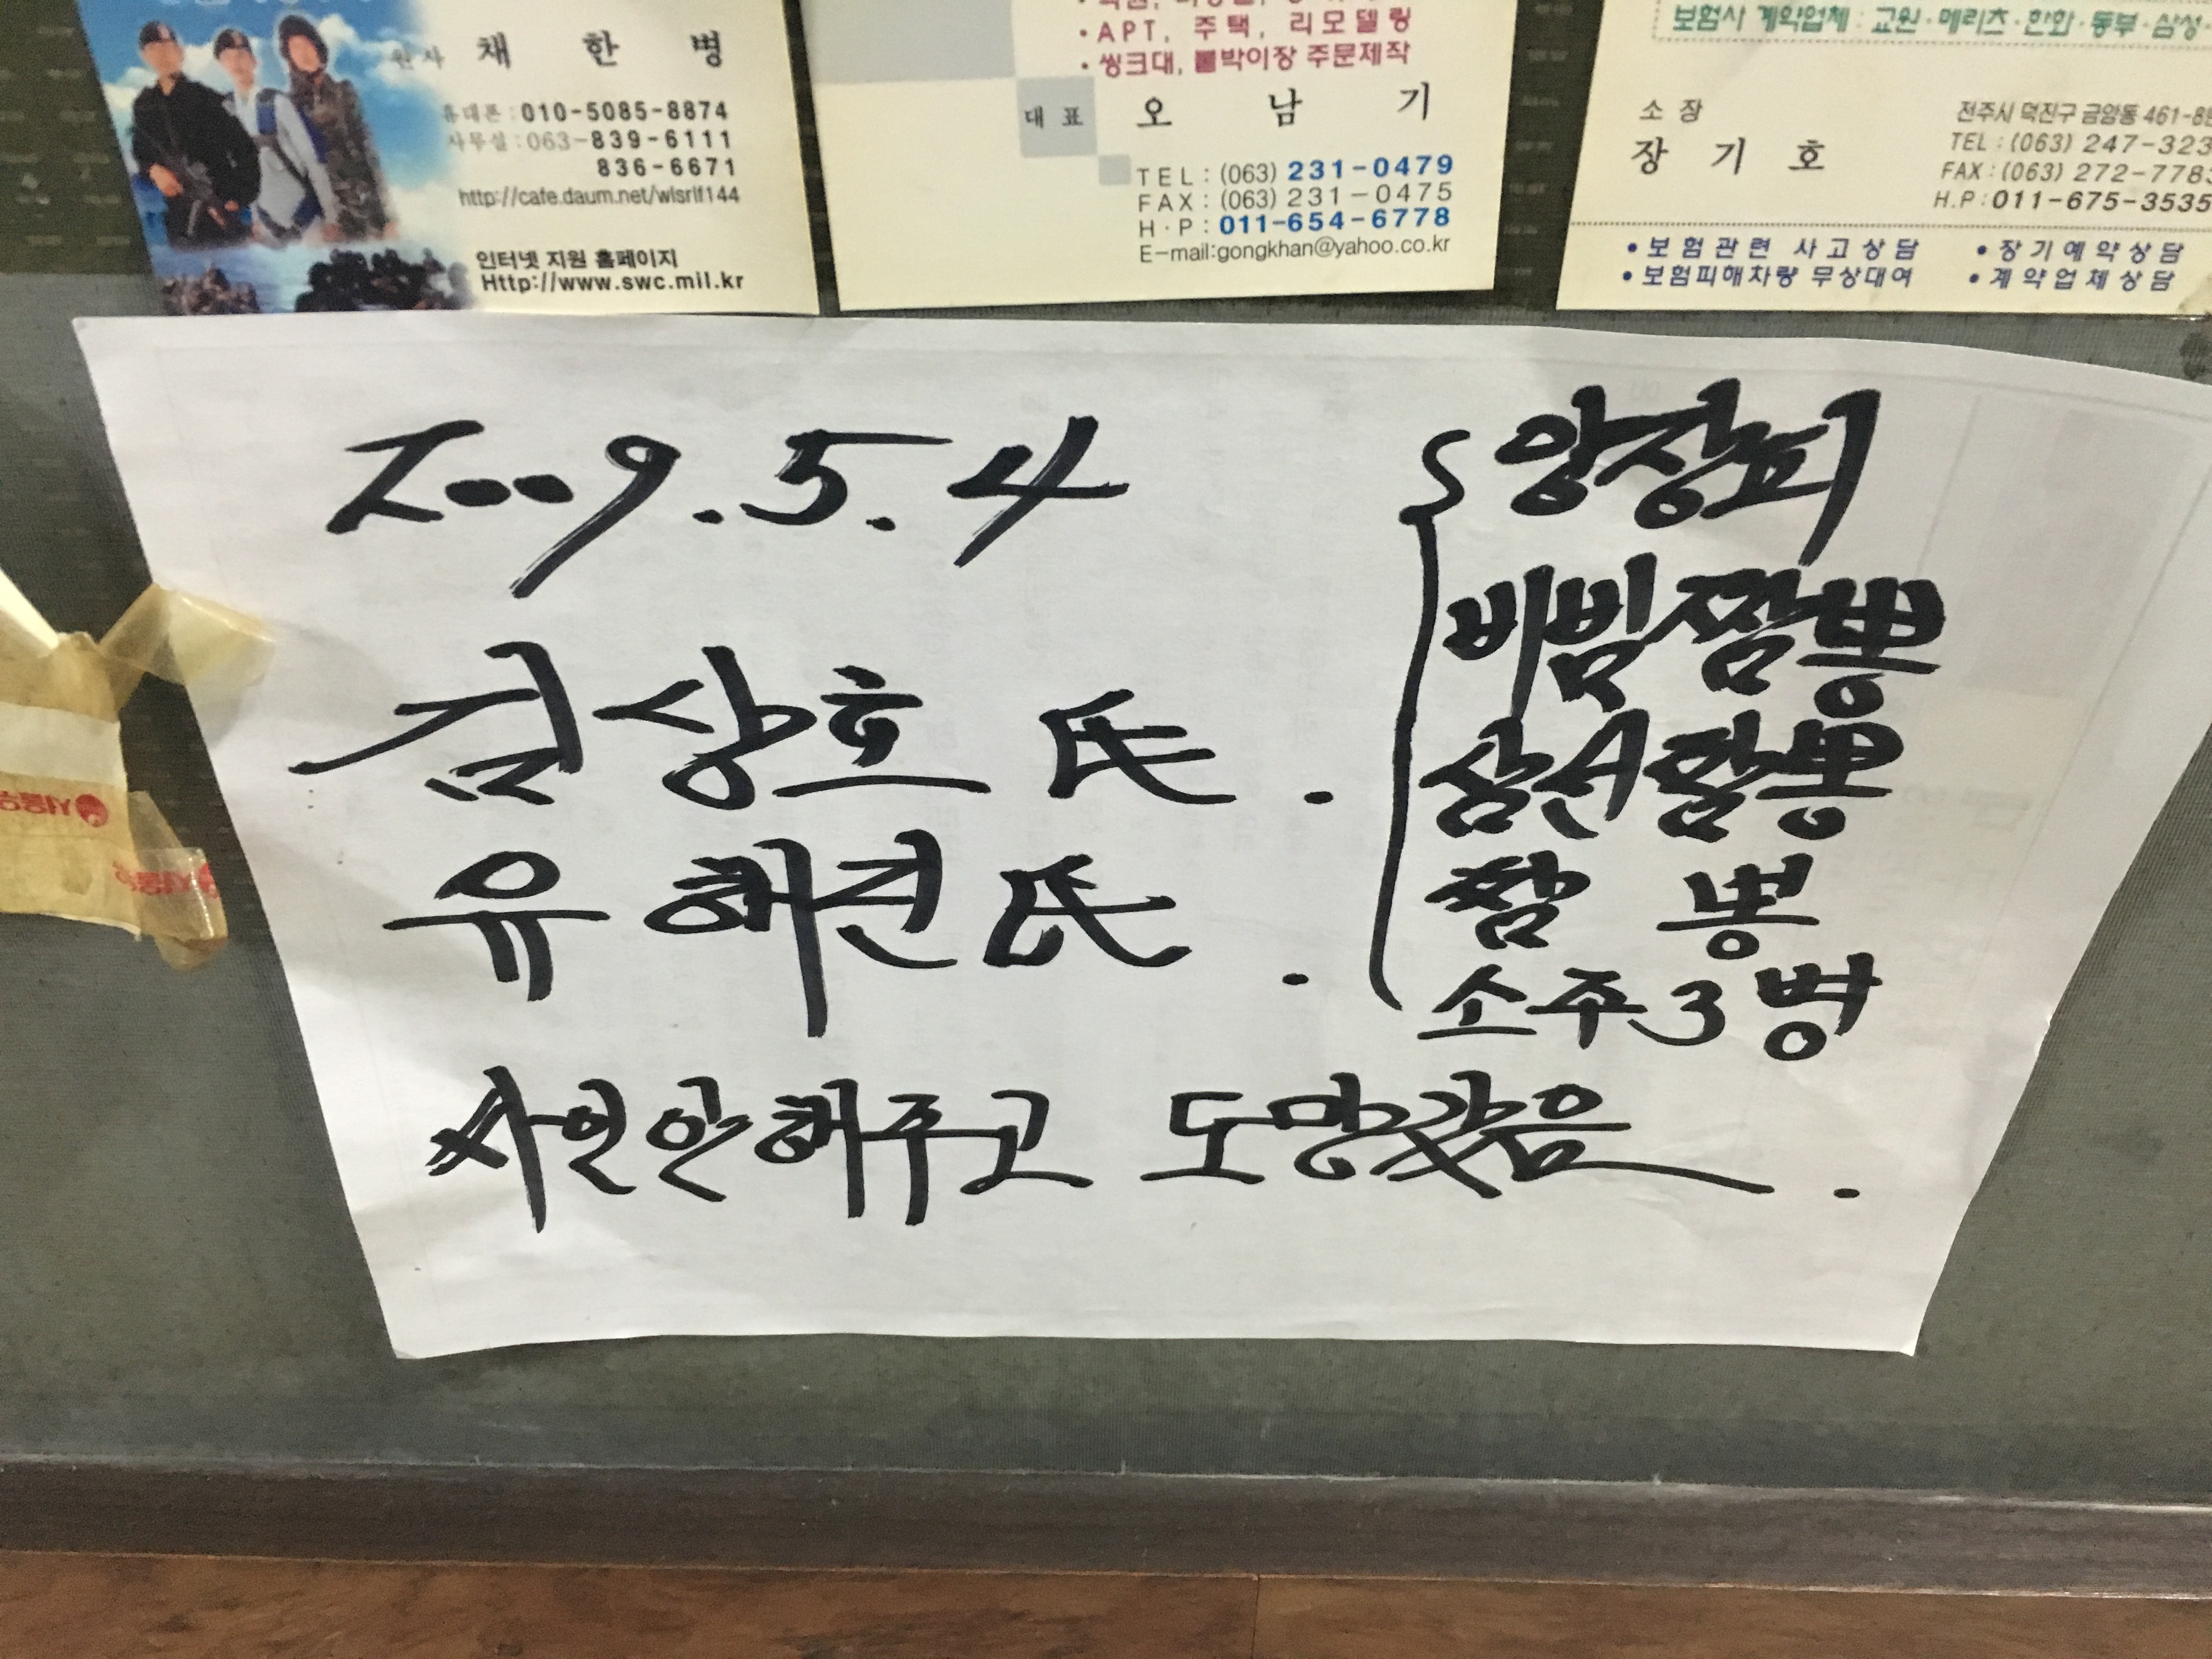 원사 채 한 병
휴대폰 : 010-5085-8874
사무실 : 063-839-6111
836-6671
http://cafe.daum.net/wlsrlf144
인터넷 지원 홈페이지
Http://www.swc.mil.kr
• APT, 주택, 리모델링
• 씽크대, 붙박이장 주문제작
대표 오 남 기
TEL : (063) 231-0479
FAX : (063) 231-0475
H·P : 011-654-6778
E-mail:gongkhan@yahoo.co.kr
보험사 계약업체 : 교원·메리츠·한화·동부·삼성·
소장
장 기 호
전주시 덕진구 금암동 461-8
TEL : (063) 247-323
FAX : (063) 272-778
H.P : 011-675-3535
• 보험관련 사고상담
• 장기예약상담
• 보험피해차량 무상대여
• 계약업체상담
2009.5.4
김상호 氏.
유해진 氏.
양장피
비빔짬뽕
삼선짬뽕
짬뽕
소주3병
싸인안해주고 도망갔음.